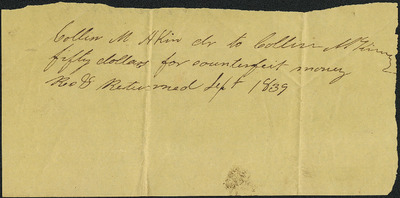 Collin M AKin dr to Collin McKinney
fifty dollars for counterfeit money
Recd & Returned Sept 1839